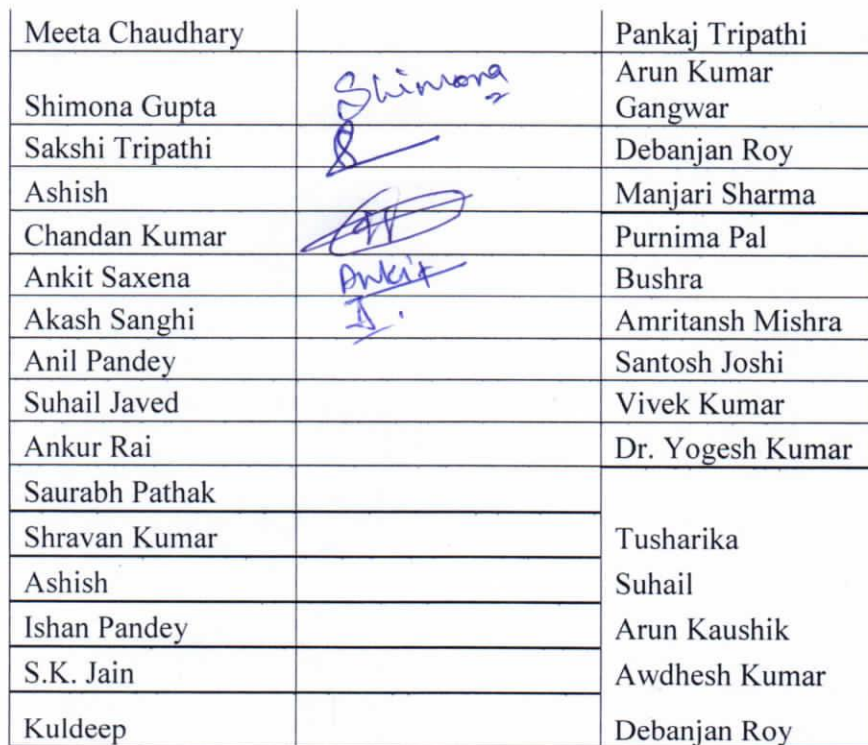 Meeta Chaudhary Pankaj Tripathi
Shimona Gupta Shimona Arun Kumar
Gangwar
Sakshi Tripathi Debanjan Roy
Ashish Manjari Sharma
Chandan Kumar Purnima Pal
Ankit Saxena Ankit Bushra
Akash Sanghi Amritansh Mishra
Anil Pandey Santosh Joshi
Suhail Javed Vivek Kumar
Ankur Rai Dr. Yogesh Kumar
Saurabh Pathak
Shravan Kumar Tusharika
Ashish Suhail
Ishan Pandey Arun Kaushik
S.K. Jain Awdhesh Kumar
Kuldeep Debanjan Roy